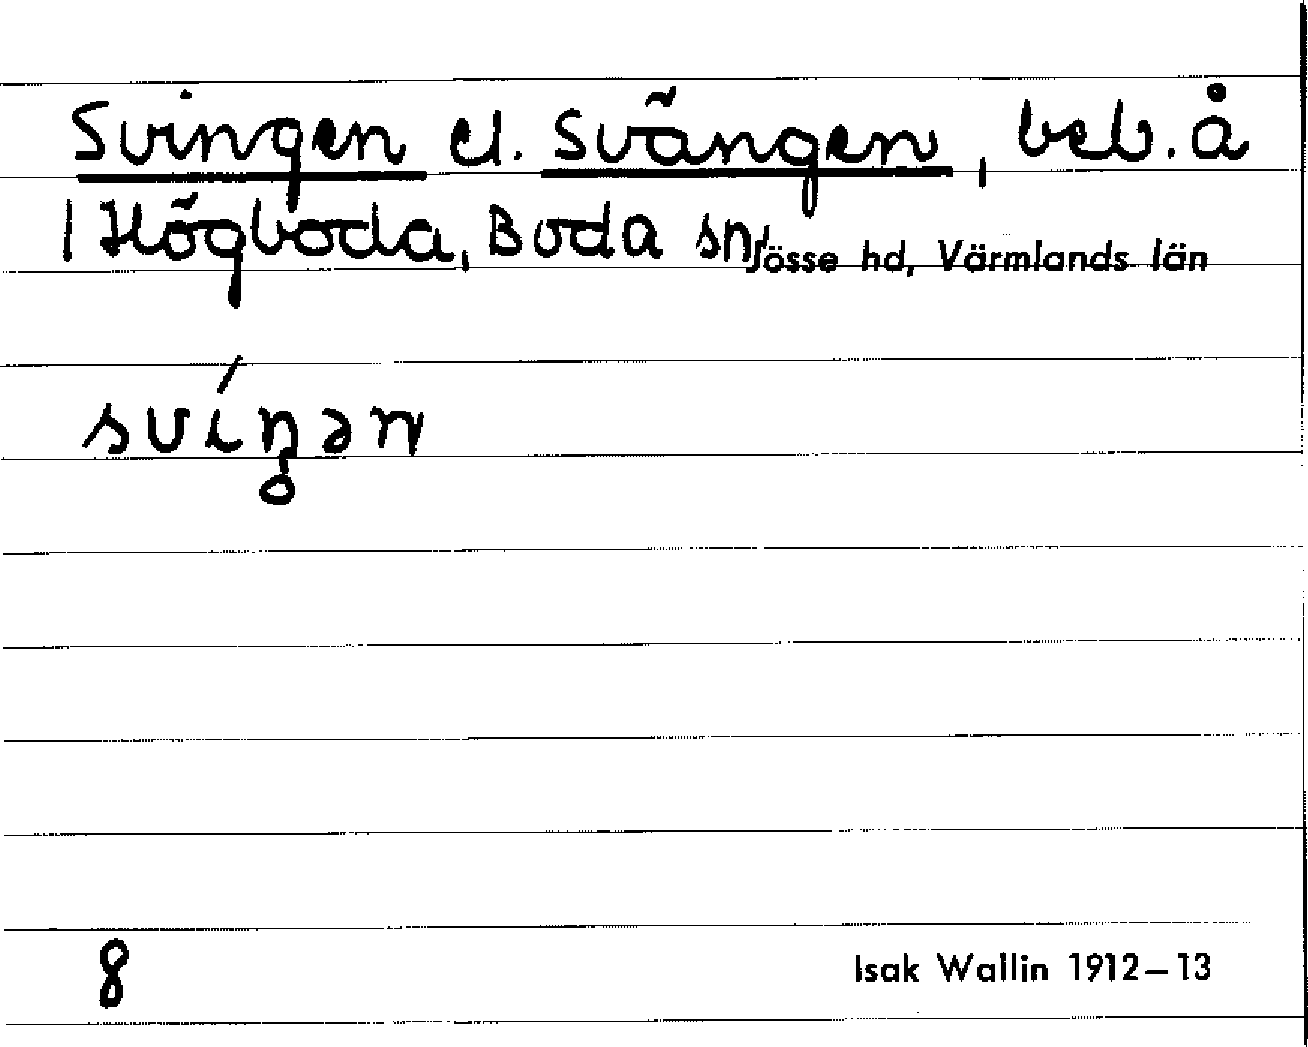 Svingen el. Svängen, beb. å
| Högboda, Boda sn, Jösse hd, Värmlands län
svíŋən
8
Isak Wallin 1912–13